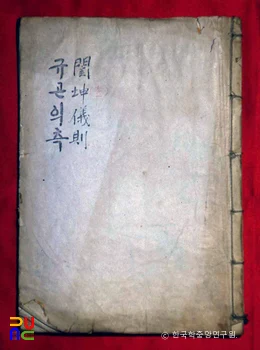 閨坤儀則
규곤의측
ⓒ 한국학중앙연구원